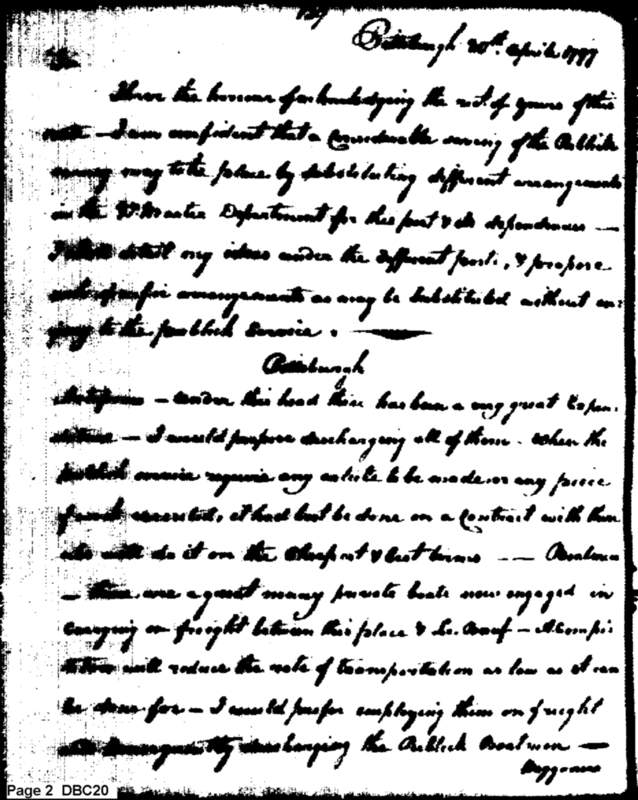 Pittsburgh 30th April 1797
Sir
I have the honour of acknowledging the rect. of yours of this
date – I am confident that a considerable saving of the Publick
money may take place by substituting different arrangements
in the Qr. Master Department for this post & its dependencies –
I shall detail my ideas under the different posts, & propose
such of arrangements as may be substituted without in:
jury to the publick Service.
Pittsburgh
– under this head there has been a very great Expen:
diture – I would propose discharging all of them. When the
publick service requires any article to be made or any piece
of work executed, it had best be done on a Contract with those
who will do it on the Cheapest & best terms – – Boatmen
– there are a great many private boats now engaged in
carrying on freight between this place & Le Beuf – A Compe:
tition will reduce the rate of transportation as low as it can
be done for – I would prefer employing them on freight
and discharging the Publick Boatmen –
Waggoners
Page 2 DBC20